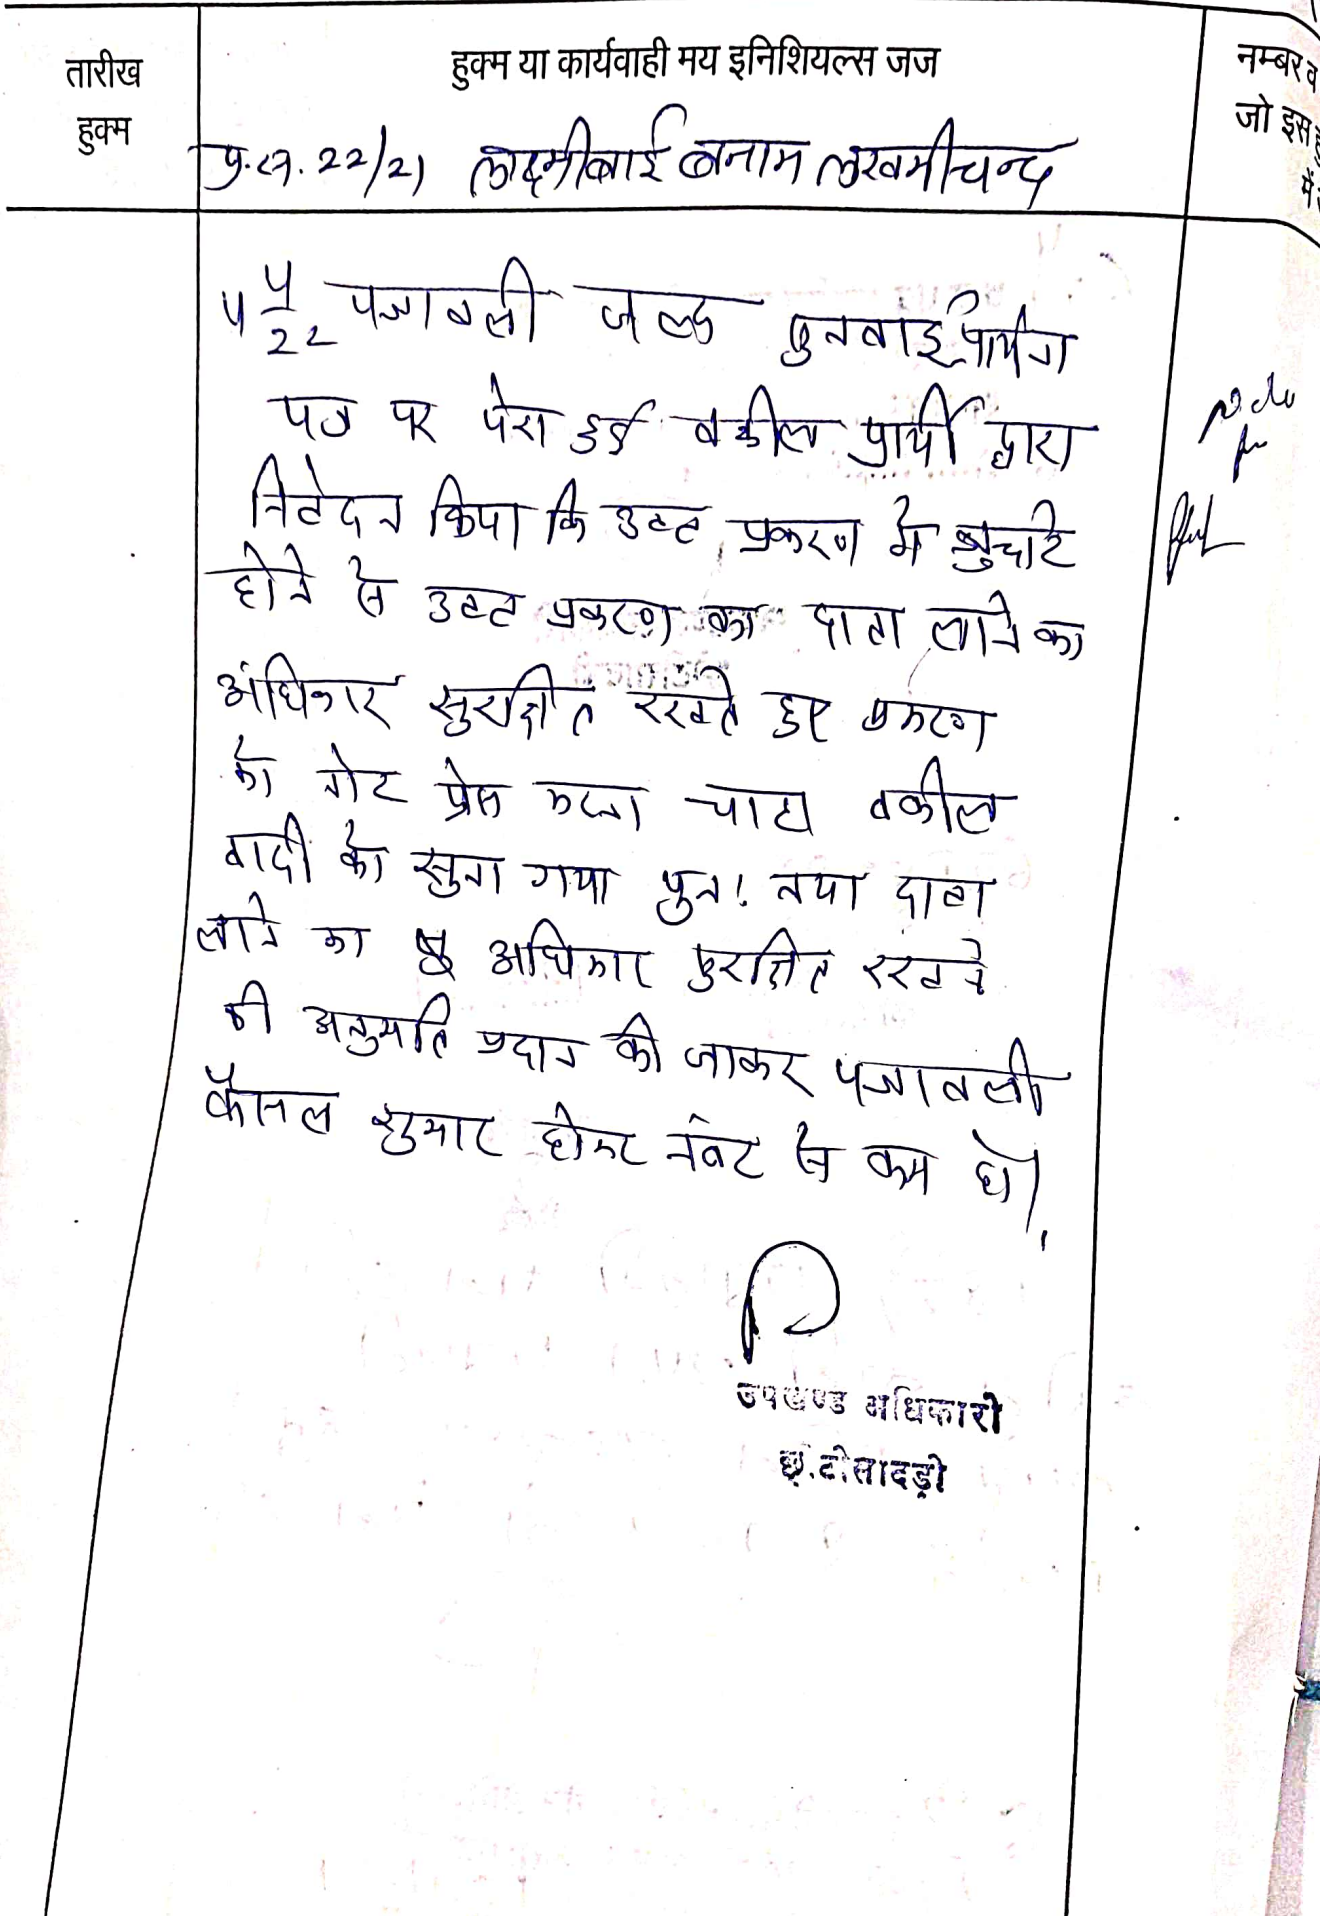 तारीख
हुक्म
हुक्म या कार्यवाही मय इनिशियल्स जज
नम्बर व
जो इस हु
में
प्र.स. 22/21 लक्ष्मीबाई बनाम लखमीचन्द
पत्रावली जल्द सुनवाई प्रार्थना
पत्र पर पेश हुई वकील प्रार्थी द्वारा
निवेदन किया कि उक्त प्रकरण मे त्रुटि
होने से उक्त प्रकरण का दावा लाने का
अधिकार सुरक्षित रखते हुए प्रकरण
को नोट प्रेस करना चाहा वकील
वादी को सुना गया पुन: नया दावा
लाने का अधिकार सुरक्षित रखने
की अनुमति प्रदान की जाकर पत्रावली
फैसल शुमार होकर नंबर से कम हो।
उपखण्ड अधिकारी
छोटीसादड़ी